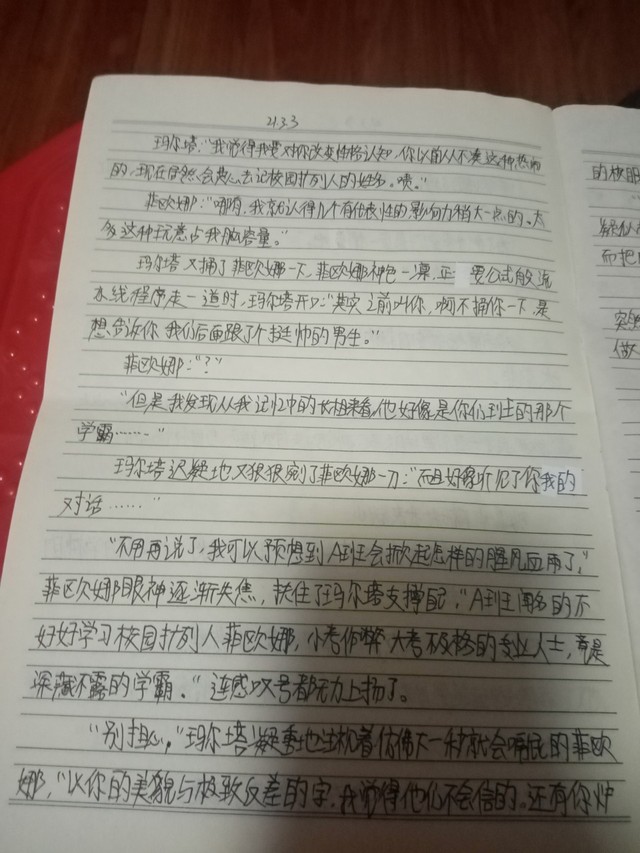 21.3.3
玛尔塔:"我觉得我要对你改变性格认知,你以前从不凑这种热闹
的,现在居然会费心去记校园扩列人的姓名。啧。"
菲欧娜:"哪有,我就认得几个有代表性的,影响力稍大一点的。太
多这种玩意占我脑容量。"
玛尔塔又捅了菲欧娜一下,菲欧娜神色一凛,正要公式般流
水线程序走一道时,玛尔塔开口:"其实之前叫你,啊不捅你一下,是
想告诉你我们后面跟了个挺帅的男生。"
菲欧娜:"?"
"但是我发现从我记忆中的长相来看,他好像是你们班的那个
学霸……"
玛尔塔迟疑地又狠狠剜了菲欧娜一刀:"而且好像听见了你我的
对话……"
"不用再说了,我可以预想到A班会掀起怎样的腥风血雨了,"
菲欧娜眼神逐渐失焦,扶住了玛尔塔支撑自己,"A班闻名的不
好好学习校园扩列人菲欧娜,小考作弊大考不及格的专业人士,竟是
深藏不露的学霸。"连感叹号都无力上扬了。
"别担心,"玛尔塔凝重地注视着仿佛下一秒就会的菲欧
娜,"以你的美貌与极致反差的字,我觉得他们不会信的。还有你炉
的核
而把
实
做